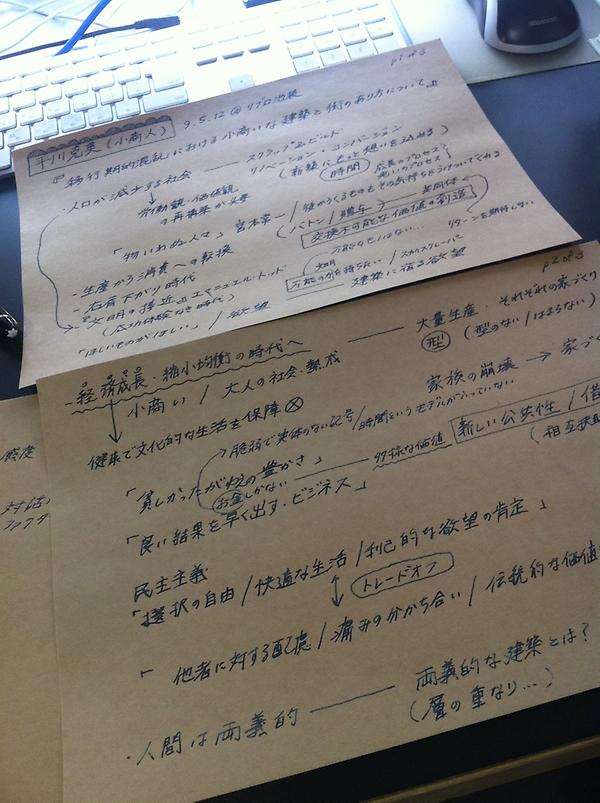 p1 of 3
平川克美(小商人) 9.5.12 @ リブロ池袋
『移行期的混乱』における小商いな建築と街のあり方について
・人口が減少する社会 ── スクラップ&ビルド
リノベーション・コンバージョン
(新築にもっと想いを込める)
労働観・価値観の再構築が必要
時間
成長のプロセス?
老いのプロセス?
「物いわぬ人々」宮本常一 / 後からくるものもその気持ちを引きついでくれる
(バトン / 贈与) ── 共同体
交換不可能な価値の創造
リターンを期待しない
- 生産から消費への転換
- 右肩下がり時代
- 『文明の接近』エマニュエル・トッド
(成功体験なき時代)
万能ではない
知性
万能の力を持ちたい / スカイスクレーパー
「ほしいものがほしい」/ 欲望
建築に宿る欲望
p2 of 3
- 経済成長・縮小均衡の時代へ ── 大量生産・それぞれの家づくり
型 (型のない / はまらない)
小商い / 大人の社会・熟成
家族の崩壊 → 家づく
健康で文化的な生活を保障 ⊗
脆弱で実体のない記号 / 時間というモデルが入っていない
「貧しかったがゆえの豊かさ」 ── 多様な価値
新しい公共性 / 借
(相互扶助
お金しかない
「良い結果を早く出す・ビジネス」
民主主義
「選択の自由 / 快適な生活 / 利己的な欲望の肯定」
↕ トレードオフ
「他者に対する配慮 / 痛みの分かち合い / 伝統的な価値
・人間は両義的 ── 両義的な建築とは?
(層の重なり...)
対話